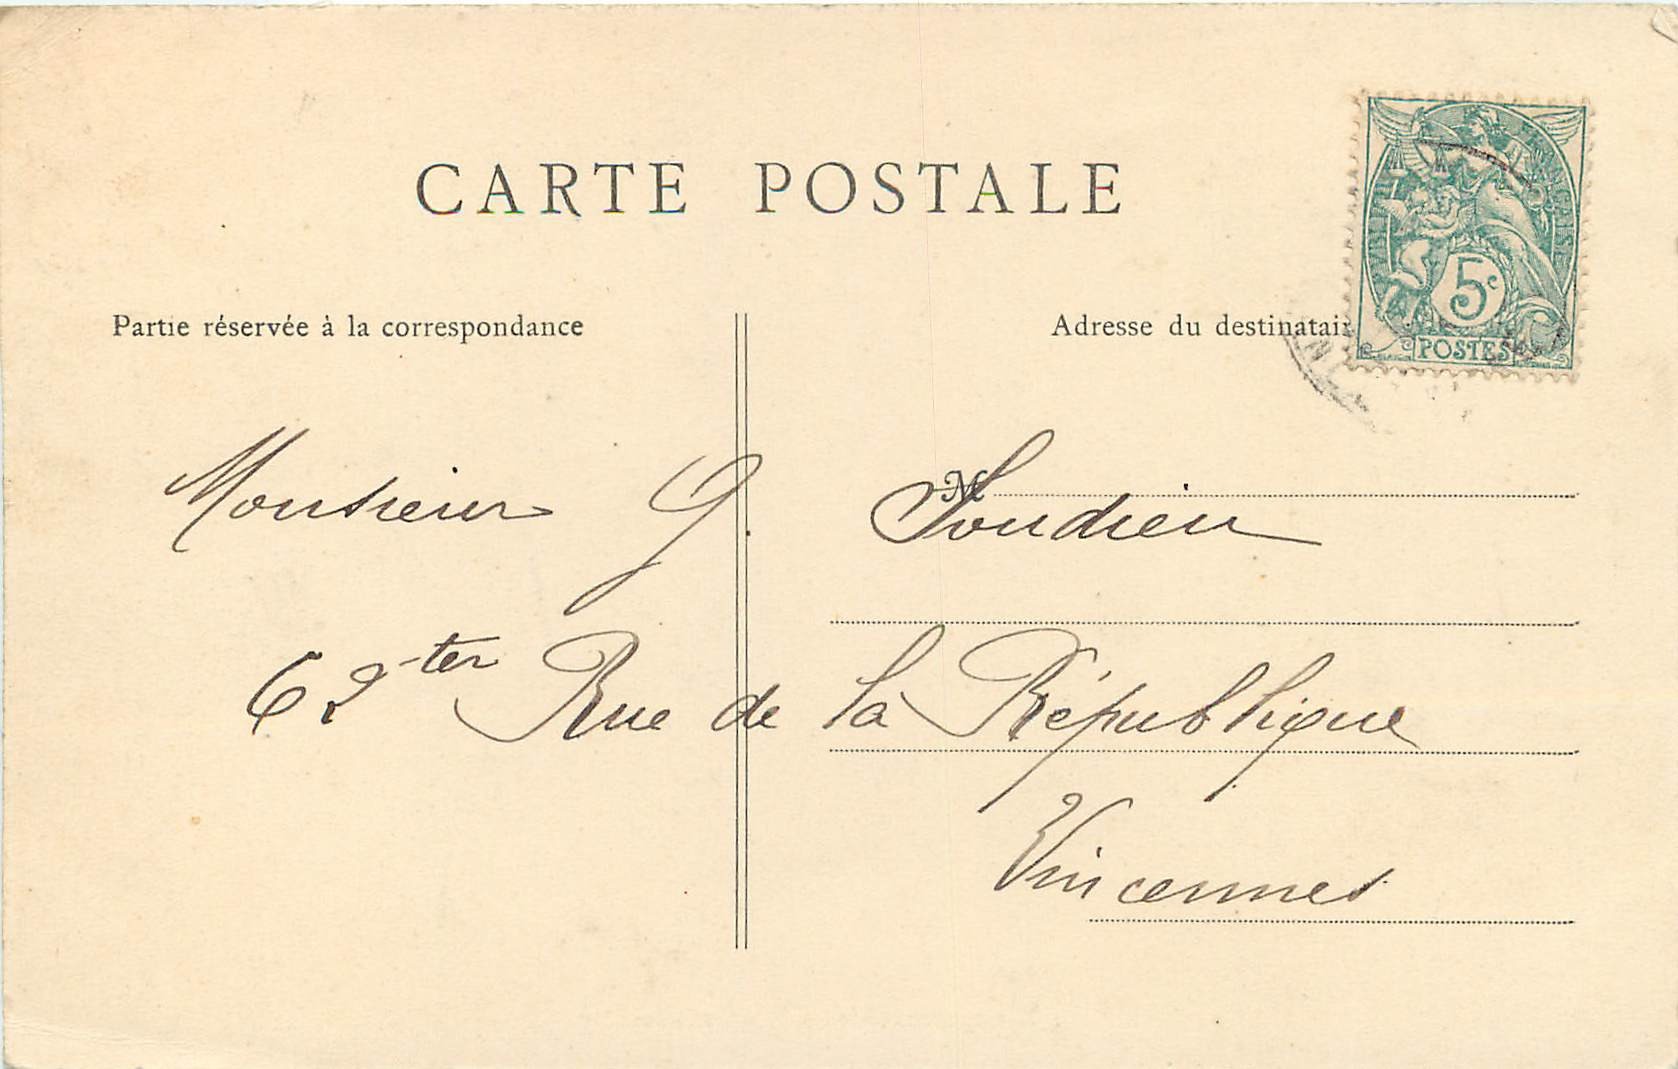 CARTE POSTALE
RÉPUBLIQUE FRANÇAISE
5c
POSTES
Partie réservée à la correspondance
Adresse du destinatair
M
Monsieur G. Soudieu
62 ter Rue de la République
Vincennes